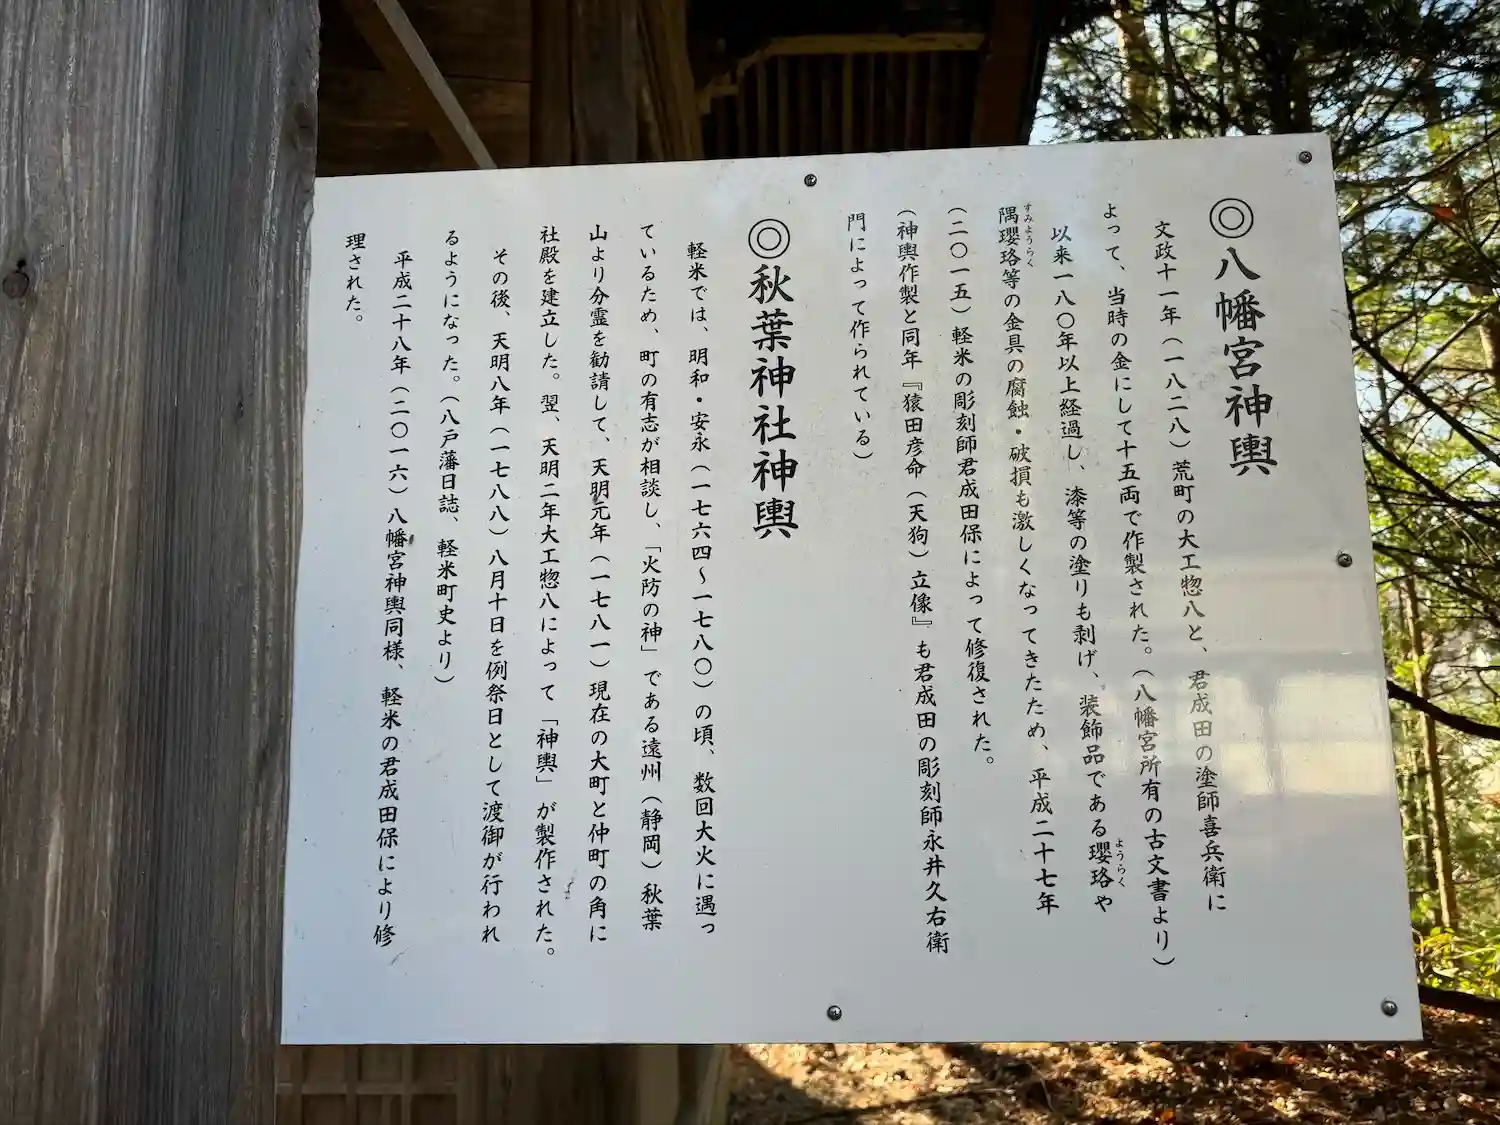 ◎八幡宮神輿
文政十一年(一八二八)荒町の大工惣八と、君成田の塗師喜兵衛に
よって、当時の金にして十五両で作製された。(八幡宮所有の古文書より)
以来一八〇年以上経過し、漆等の塗りも剥げ、装飾品である瓔珞や
ようらく
隅瓔珞等の金具の腐蝕・破損も激しくなってきたため、平成二十七年
すみようらく
(二〇一五)軽米の彫刻師君成田保によって修復された。
(神輿作製と同年『猿田彦命(天狗)立像』も君成田の彫刻師永井久右衛
門によって作られている)
◎秋葉神社神輿
軽米では、明和・安永(一七六四～一七八〇)の頃、数回大火に遇っ
ているため、町の有志が相談し、「火防の神」である遠州(静岡)秋葉
山より分霊を勧請して、天明元年(一七八一)現在の大町と仲町の角に
社殿を建立した。翌、天明二年大工惣八によって「神輿」が製作された。
その後、天明八年(一七八八)八月十日を例祭日として渡御が行われ
るようになった。(八戸藩日誌、軽米町史より)
平成二十八年(二〇一六)八幡宮神輿同様、軽米の君成田保により修
理された。